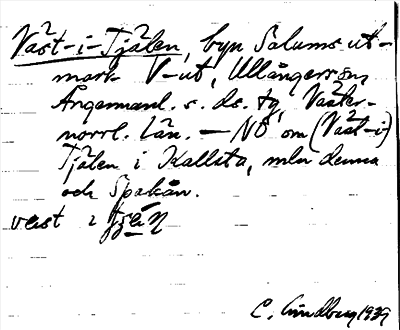 Väst-i-Tjälen, byn Salums ut-
mark V-ut, Ullångers sn,
Ångermanl. s. ds. tg, Väster-
norrl. län. — NO om (Väst-i)
Tjälen i Kallsta, mln denna
och Spakån.
vest i
C. Lindberg 1939